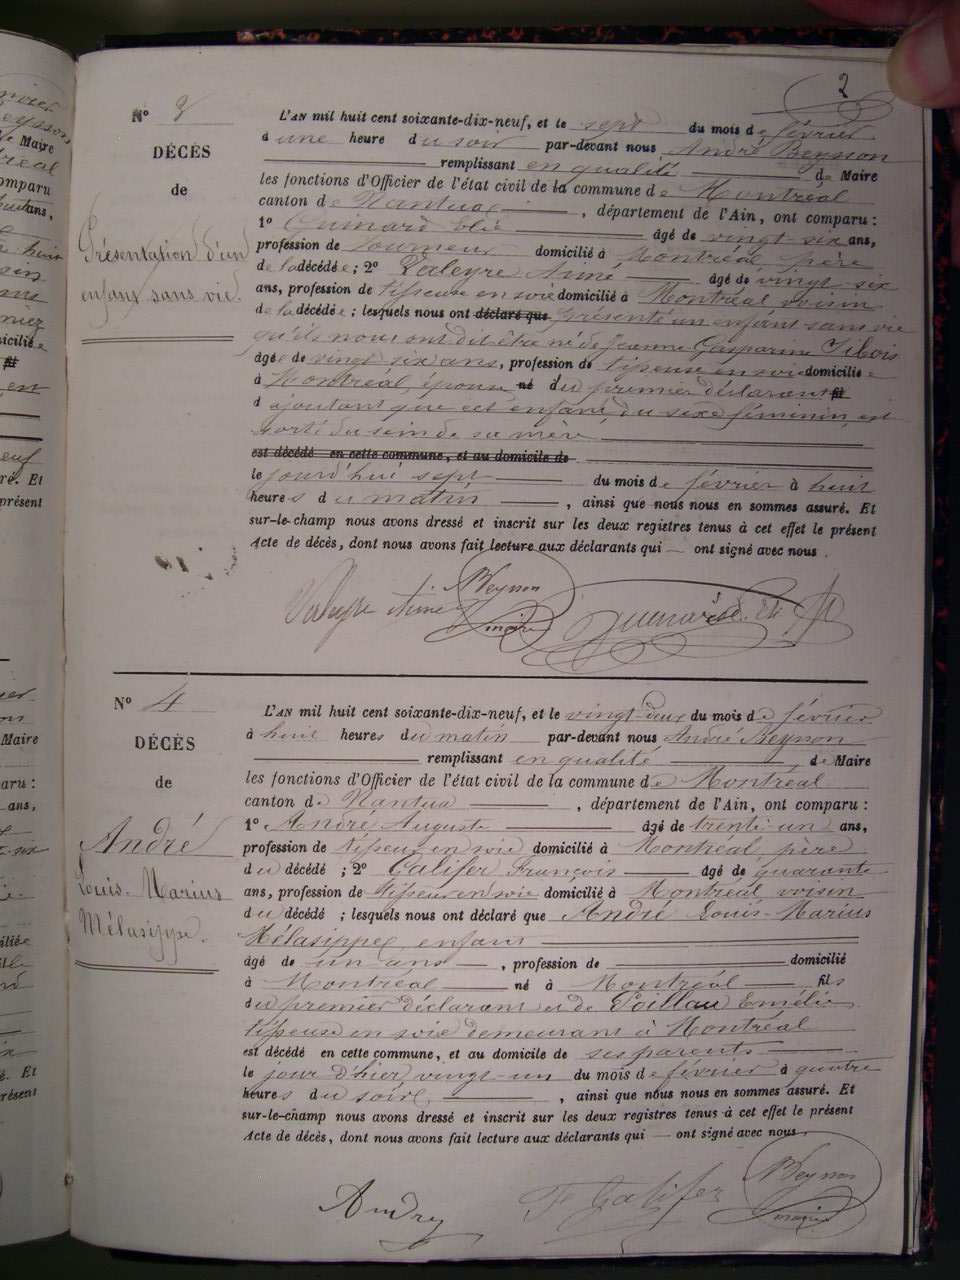 2
N° 3
DÉCÈS
de
Présentation d'un
enfant sans vie.
L'AN mil huit cent soixante-dix-neuf, et le sept du mois de février
à une heure du soir par-devant nous André Beysson
remplissant en qualité de Maire
les fonctions d'Officier de l'état civil de la commune de Montréal
canton de Nantua, département de l'Ain, ont comparu :
1° âgé de vingt-six ans,
profession de tourneur domicilié à Montréal père
de la décédée ; 2° Valeyre Aimé âgé de vingt six
ans, profession de tisseur en soie domicilié à Montréal voisin
de la décédée ; lesquels nous ont déclaré que présenté un enfant sans vie
qu'ils nous ont dit être né de Jeanne Gasparine
âgée de vingt six ans, profession de tisseuse en soie domiciliée
à Montréal, épouse né du premier déclarant fil
d ajoutant que cet enfant du sexe féminin, est
sorti du sein de sa mère
est décédé en cette commune, et au domicile de
le jourd'hui sept du mois de février à huit
heures du matin, ainsi que nous nous en sommes assuré. Et
sur-le-champ nous avons dressé et inscrit sur les deux registres tenus à cet effet le présent
Acte de décès, dont nous avons fait lecture aux déclarants qui ont signé avec nous.
Valeyre Aimé Beysson
maire
N° 4
DÉCÈS
de
André
Louis-Marius
Mélasippe.
L'AN mil huit cent soixante-dix-neuf, et le vingt-deux du mois de février
à huit heures du matin par-devant nous André Beysson
remplissant en qualité de Maire
les fonctions d'Officier de l'état civil de la commune de Montréal
canton de Nantua, département de l'Ain, ont comparu :
1° André Auguste âgé de trente-un ans,
profession de tisseur en soie domicilié à Montréal, père
du décédé ; 2° Califer François âgé de quarante
ans, profession de tisseur en soie domicilié à Montréal voisin
du décédé ; lesquels nous ont déclaré que André Louis-Marius
Mélasippe, enfant
âgé de un ans, profession de domicilié
à Montréal né à Montréal, fils
du premier déclarant et de Poillau Emélie
tisseuse en soie demeurant à Montréal
est décédé en cette commune, et au domicile de ses parents
le jour d'hier vingt-un du mois de février à quatre
heures du soir, ainsi que nous nous en sommes assuré. Et
sur-le-champ nous avons dressé et inscrit sur les deux registres tenus à cet effet le présent
Acte de décès, dont nous avons fait lecture aux déclarants qui ont signé avec nous.
Andry F Califer Beysson
maire